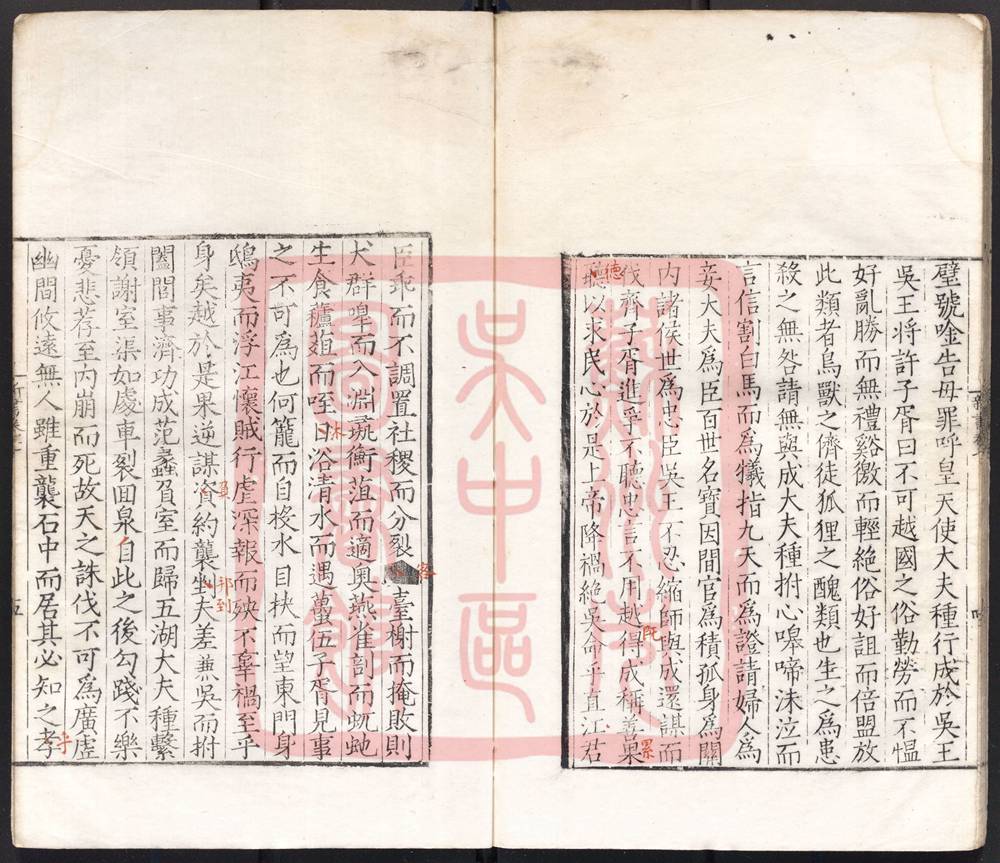 璧號唫告毋罪呼皇天使大夫種行成於吳王
吳王將許子胥曰不可越國之俗勤勞而不慍
好亂勝而無禮谿徼而輕絶俗好詛而倍盟放
此類者鳥獸之儕徒狐狸之醜類也生之爲患
殺之無咎請無與成大夫種拊心嘷啼沬泣而
言信割白馬而爲犧指九天而爲證請婦人爲
妾大夫爲臣百世名寶因間官爲積孤身爲關
内諸侯世爲忠臣吳王不忍縮師與成還謀而
伐齊子胥進爭不聽忠言不用越得成稱善果
聽以求民心於是上帝降禍絶吳命乎直江君
德
既
累
臣乖而不調置社稷而分裂臺榭而掩敗則
犬群嘷而入淵彘銜菹而適奧燕雀剖而虺虵
生食蘆菹而咥口浴清水而遇蠆伍子胥見事
之不可爲也何籠而自投水目抉而望東門身
鴟夷而浮江懷賊行虐深報而殃不辜禍至乎
身矣越於是果逆謀資約襲剉夫差兼吳而拊
闔閭事濟功成范蠡負室而歸五湖大夫種繫
領謝室渠如處車裂回泉自此之後勾踐不樂
憂悲荐至内崩而死故天之誅伐不可爲廣虛
幽間攸遠無人雖重襲石中而居其必知之孝
容
負
邗到
乎
五
蘇州市
吳中區
圖書館